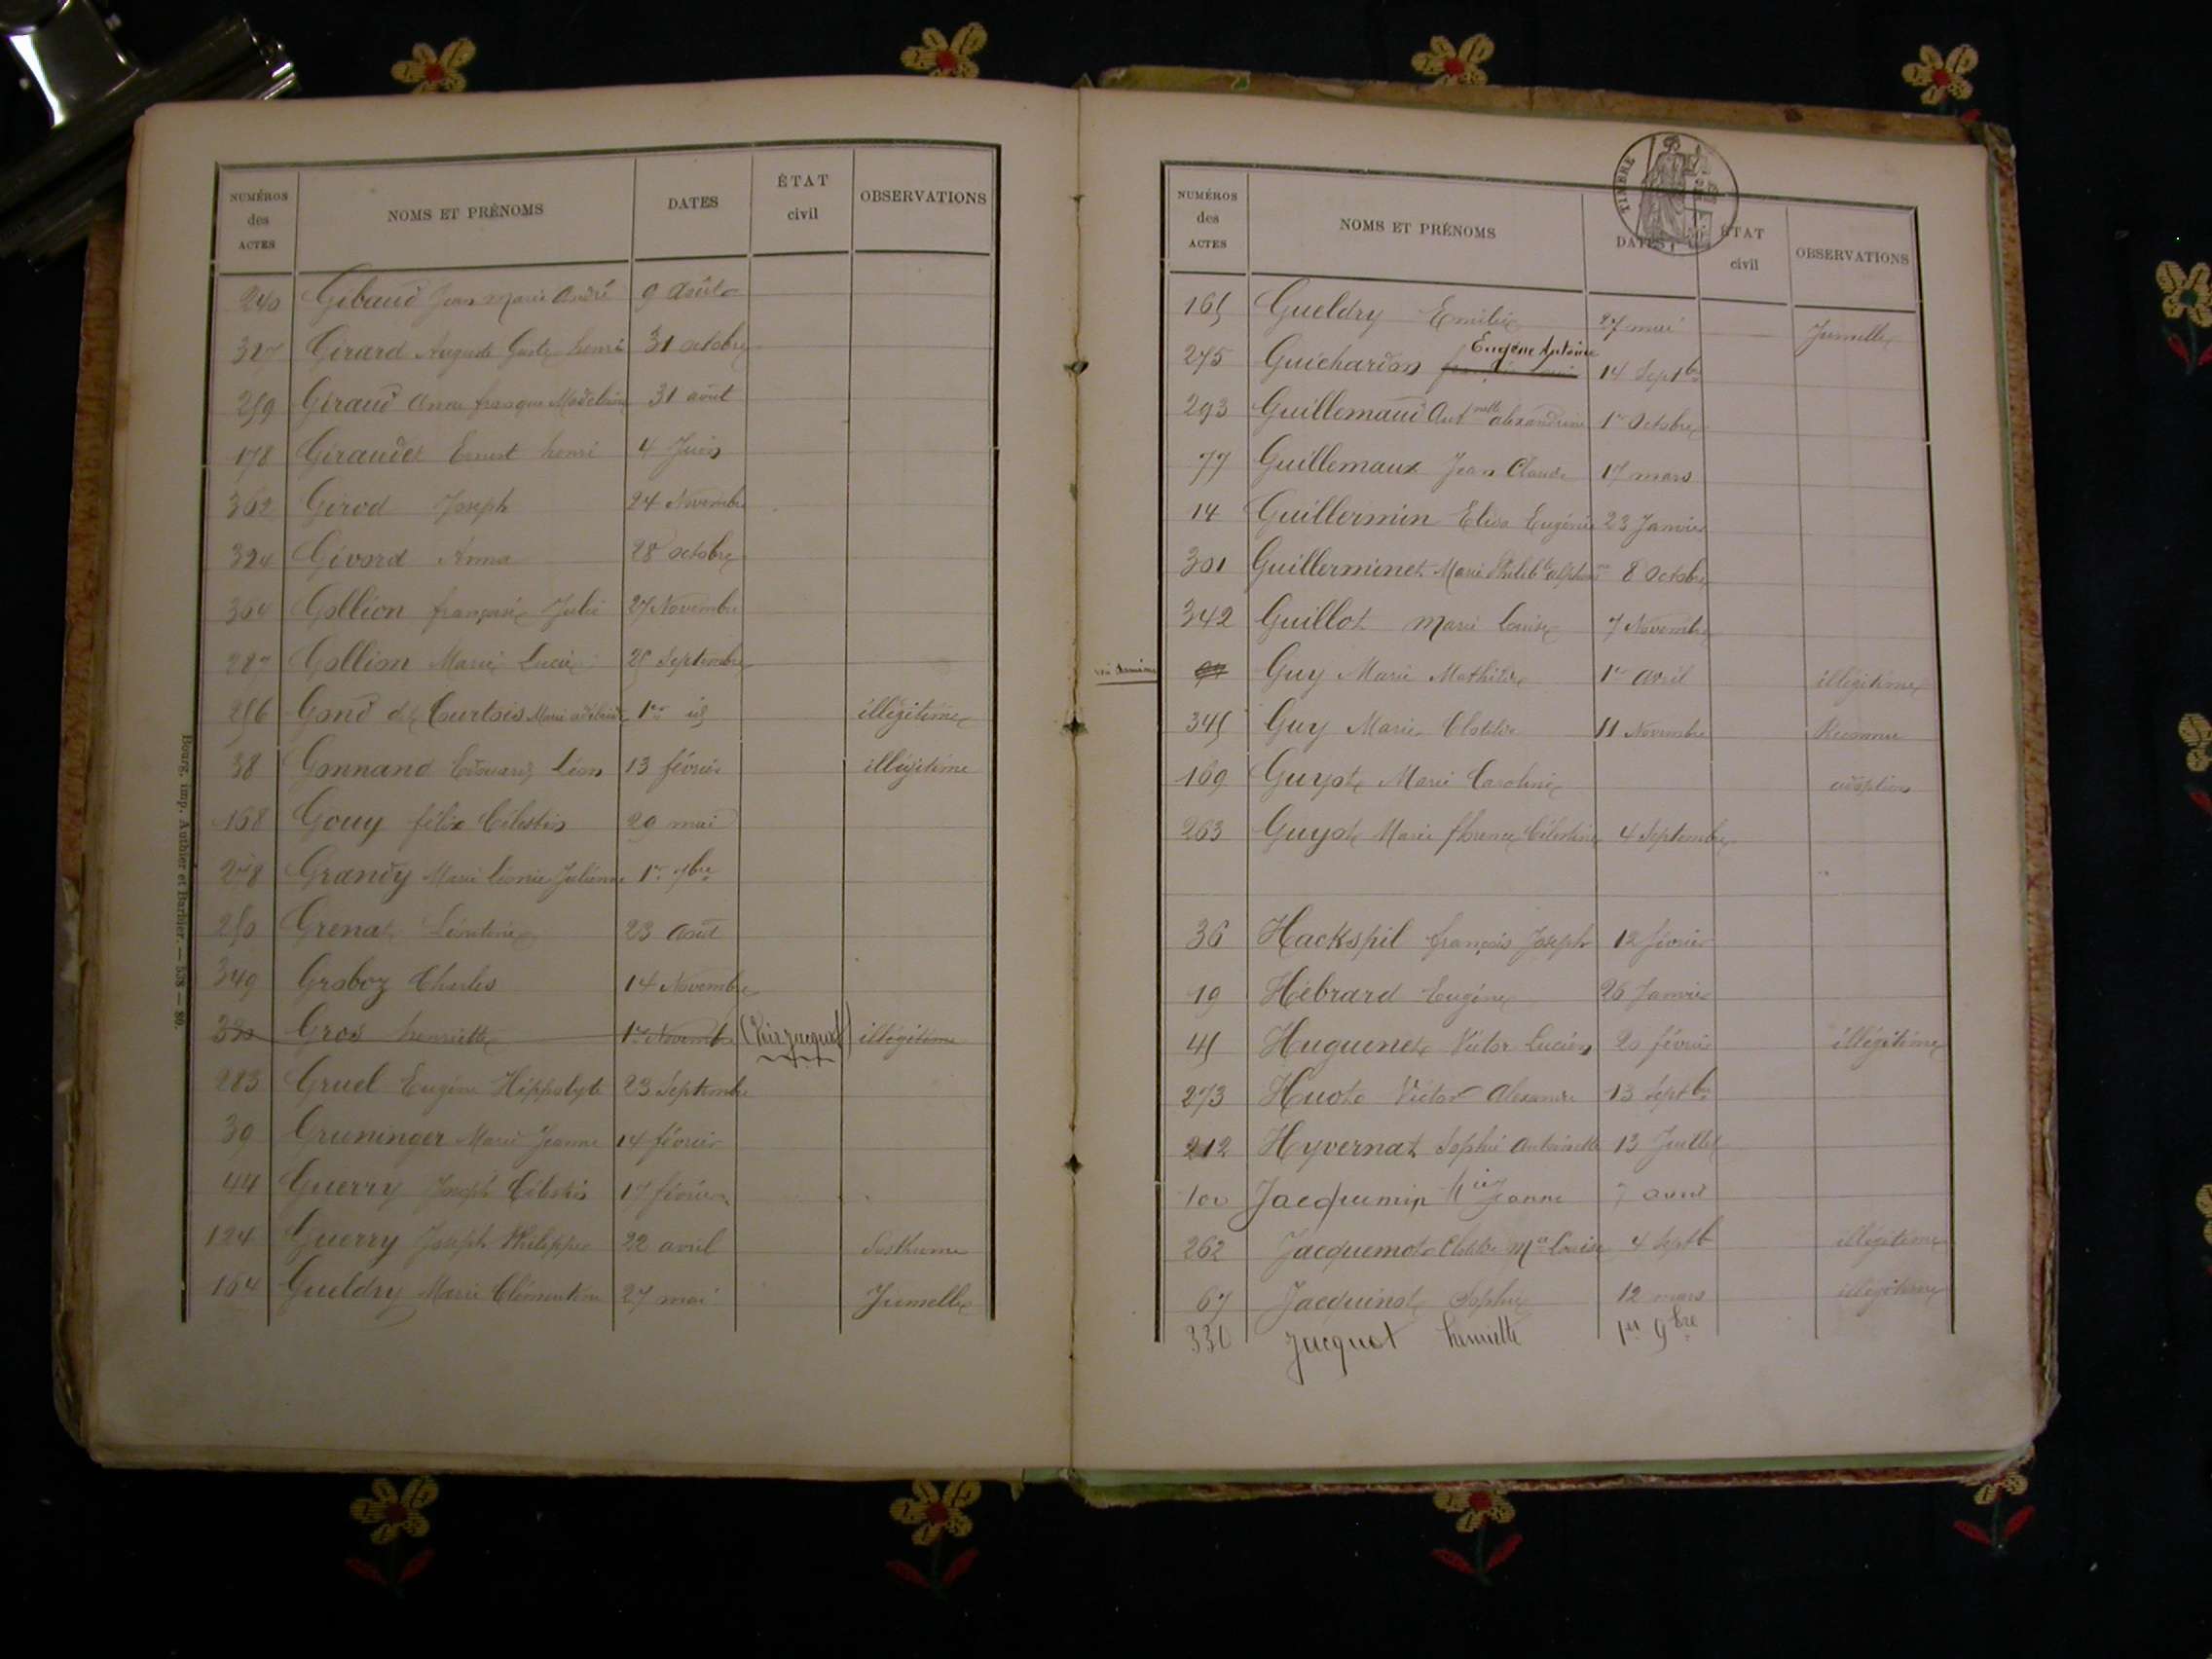 NUMÉROS des ACTES NOMS ET PRÉNOMS DATES ÉTAT civil OBSERVATIONS
240 Gibaud Jean Marie André 9 Août
327 Girard Auguste henri 31 octobre
259 Giraud Anna françoise Madeleine 31 août
178 Giraudet Ernest henri 4 Juin
362 Girod Joseph 24 Novembre
324 Givord Anna 28 octobre
364 Gollion françoise Julie 27 Novembre
287 Gollion Marie Lucie 25 Septembre
256 Gond dit Courtois Marie adélaïde 1er illégitime
38 Gonnand Edouard Léon 13 février illégitime
168 Gouy félix Célestin 29 mai
278 Grandy Marie Léonie Julienne 1er 7bre
250 Grenat Léontine 23 Août
349 Groboz Charles 14 Novembre
330 Gros henriette 1er Novembre (Voir Jacquot) illégitime
283 Gruel Eugène Hippolyte 23 Septembre
39 Gruninger Marie Jeanne 14 février
44 Guerry Joseph Célestin 17 février
124 Guerry Joseph Philippe 22 avril Posthume
164 Gueldry Marie Clémentine 27 mai Jumelle
Bourg, imp. Authier et Barbier. — 538 — 89.
TIMBRE
NUMÉROS des ACTES NOMS ET PRÉNOMS DATES ÉTAT civil OBSERVATIONS
165 Gueldry Emilie 27 mai Jumelle
Eugène Antoine
275 Guichardon 14 Septbre
293 Guillemaud Antnette alexandrine 1er Octobre
77 Guillemaux Jean Claude 17 mars
14 Guillermin Elisa Eugénie 23 Janvier
301 Guillerminet Marie Philibte alphonsine 8 Octobre
342 Guillot Marie Louise 7 Novembre
Guy Marie Mathilde 1er avril illégitime
345 Guy Marie Clotilde 11 Novembre Reconnue
169 Guyot Marie Caroline adoption
263 Guyot Marie florence Célestine 4 Septembre
36 Hackspil françois Joseph 12 février
19 Hébrard Eugène 26 Janvier
45 Huguenet Victor Lucien 20 février illégitime
273 Huot Victor Alexandre 13 Septbre
212 Hyvernat Sophie Antoinette 13 Juillet
100 Jacquemin Jeanne 7 avril
262 Jacquemot Clotilde Mie Louise 4 Septb illégitime
67 Jacquinot Sophie 12 mars illégitime
330 Jacquot henriette 1er 9bre